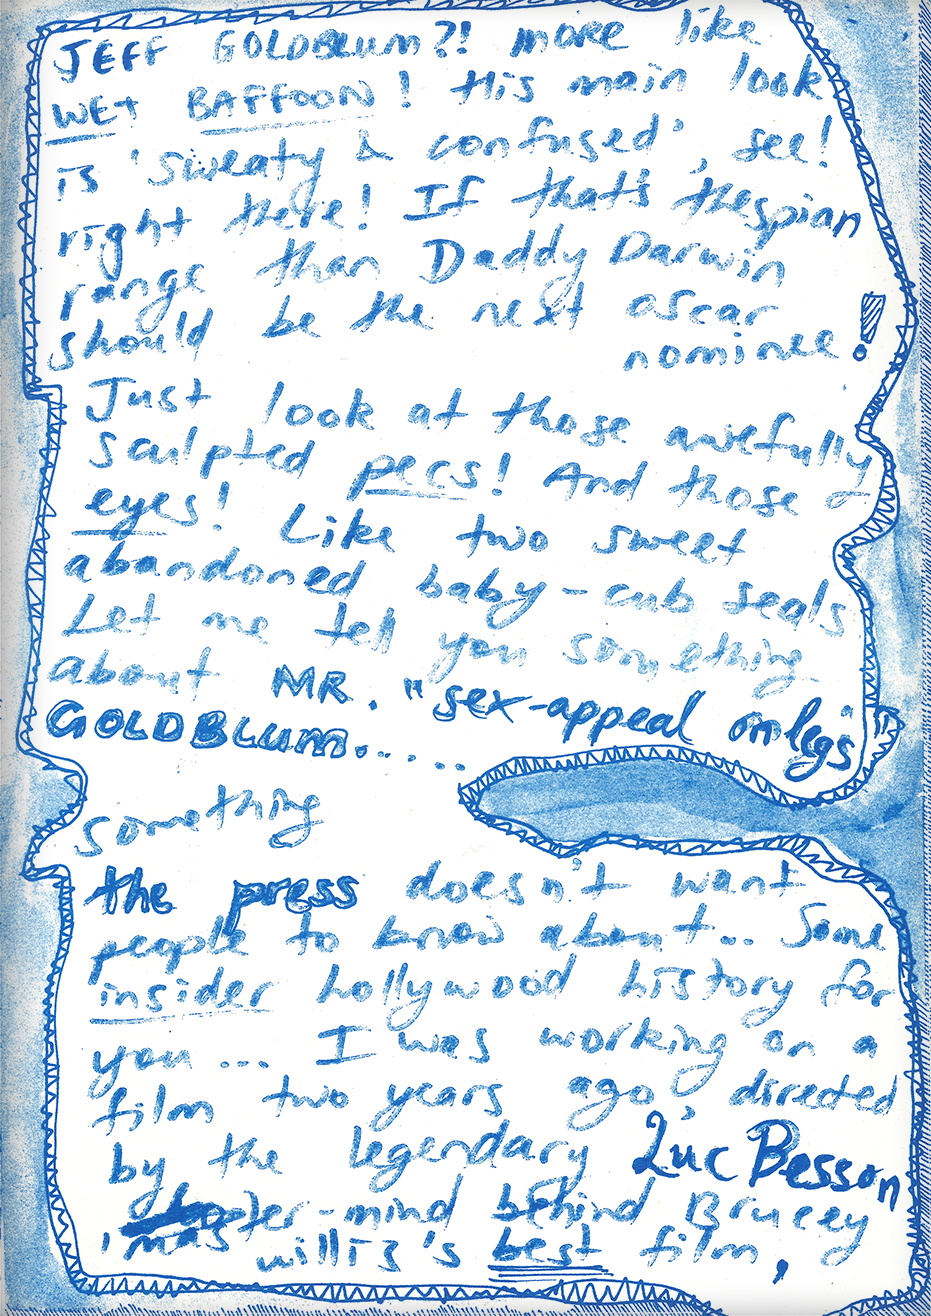 JEFF GOLDBLUM?! more like
WET BAFFOON! His main look
is 'sweaty & confused', see!
right there! If that's thespian
range than Daddy Darwin
should be the next oscar
nominee!
Just look at those awefully
sculpted pecs! And those
eyes! Like two sweet
abandoned baby-cub seals
Let me tell you something
about MR. "sex-appeal on legs"
GOLDBLUM.....
something
the press doesn't want
people to know about... Some
insider hollywood history for
you... I was working on a
film two years ago, directed
by the legendary Luc Besson
'master-mind behind Brucey
willis's best film,